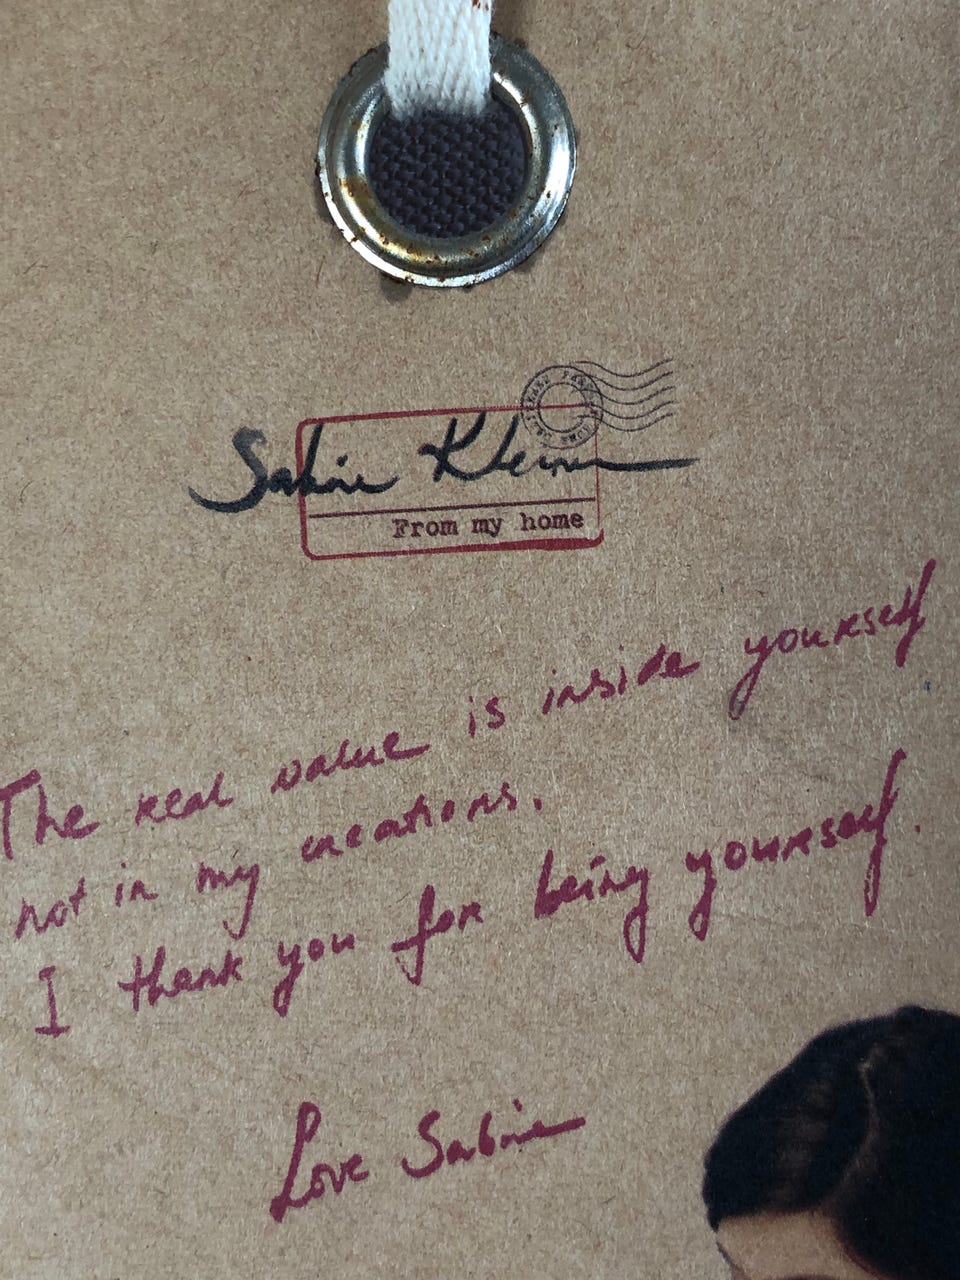 Sabine
From my home
The real value is inside yourself
not in my creations.
I thank you for being yourself.
Love Sabine